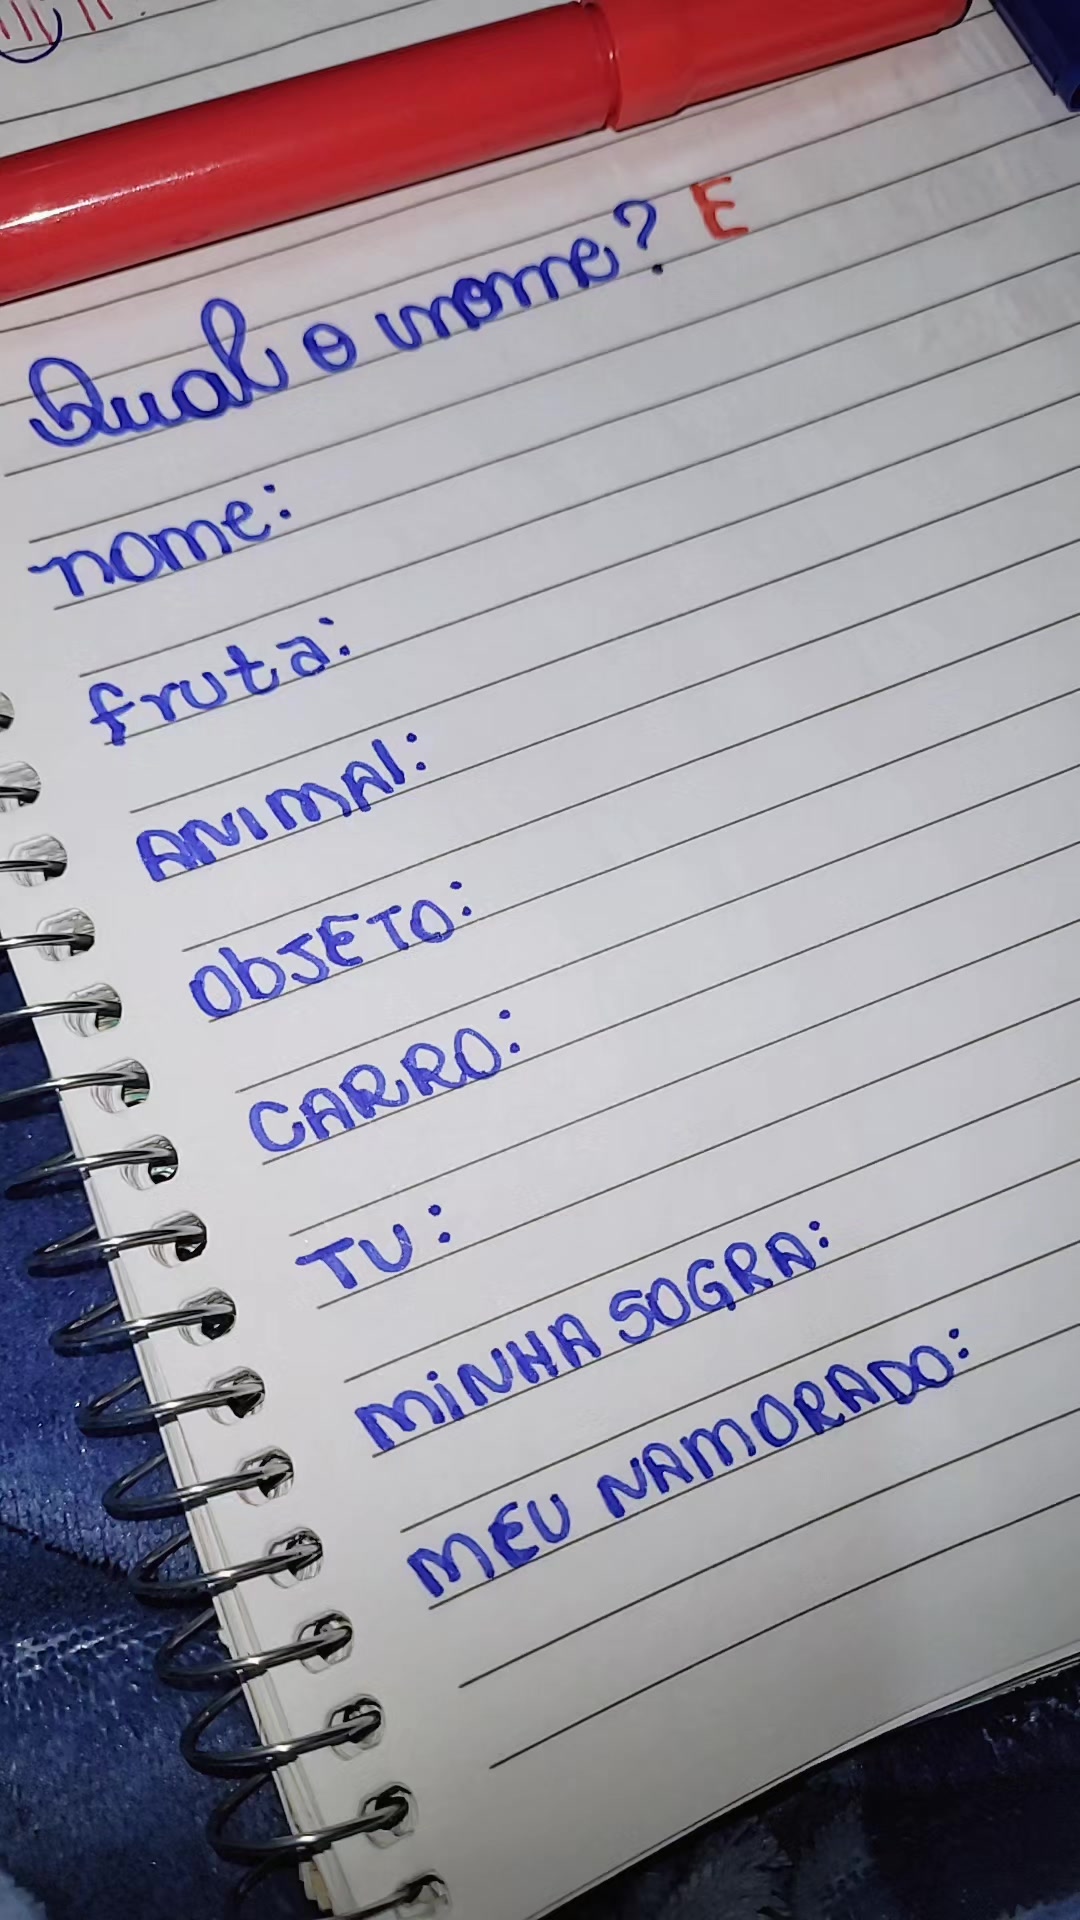 Qual o nome? E
nome:
fruta:
ANIMAl:
ObJETO:
CARRO:
TU:
MiNHA SOGRA:
MEU NAMORADO: